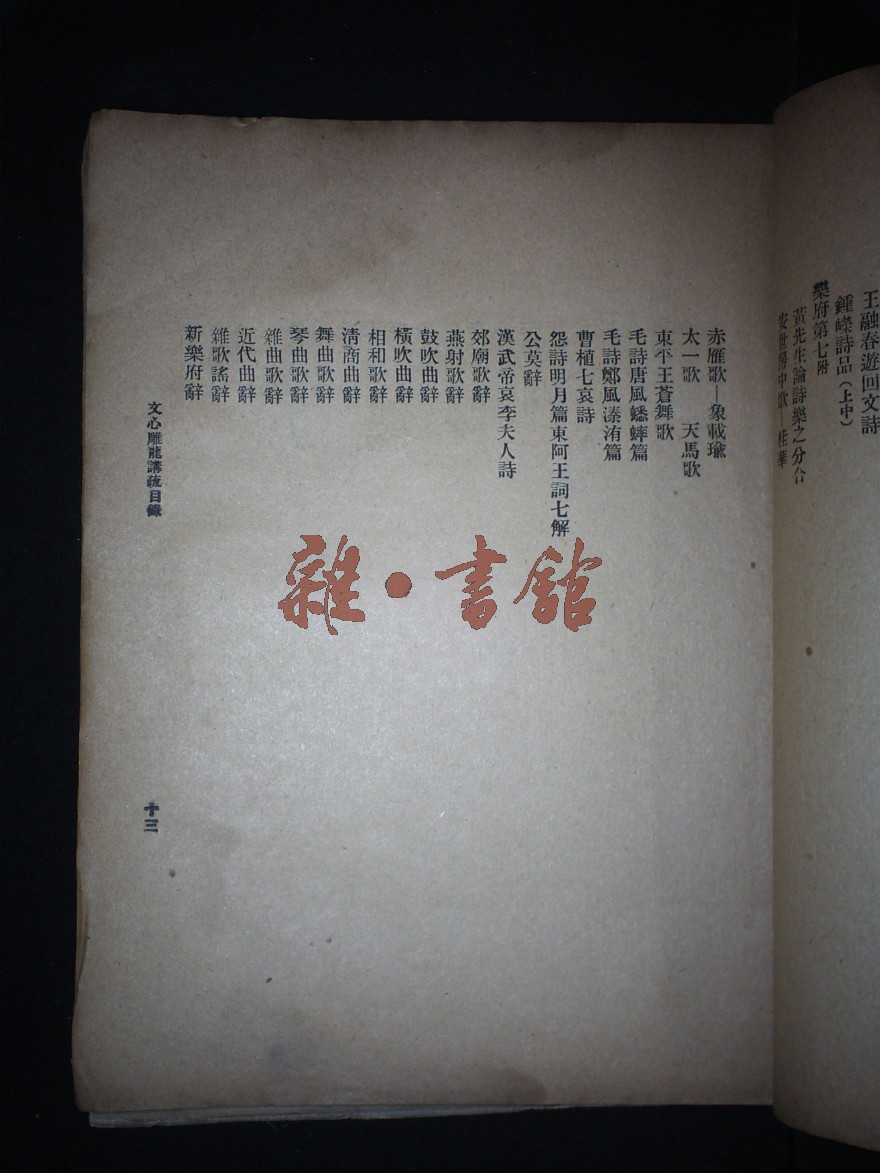 王融春遊回文詩
鍾嶸詩品（上中）
樂府第七附
黃先生論詩樂之分合
安世房中歌—桂華
赤雁歌—象載瑜
太一歌　天馬歌
東平王蒼舞歌
毛詩唐風蟋蟀篇
毛詩鄭風溱洧篇
曹植七哀詩
怨詩明月篇東阿王詞七解
公莫辭
漢武帝哀李夫人詩
郊廟歌辭
燕射歌辭
鼓吹曲辭
橫吹曲辭
相和歌辭
清商曲辭
舞曲歌辭
琴曲歌辭
雜曲歌辭
近代曲辭
雜歌謠辭
新樂府辭
文心雕龍講疏目錄
十三
雜·書館